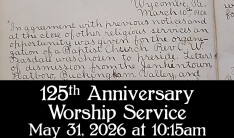 Wycombe, Pa.
March 10th
"In agreement with previous notice and
at the close of other religious services an
opportunity was given for the organi-
zation of a Baptist Church Rev. C. W.
was chosen to preside. Letters
of dismission from the
Hatboro, Buckingham, Valley, and
125th Anniversary
Worship Service
May 31, 2026 at 10:15am